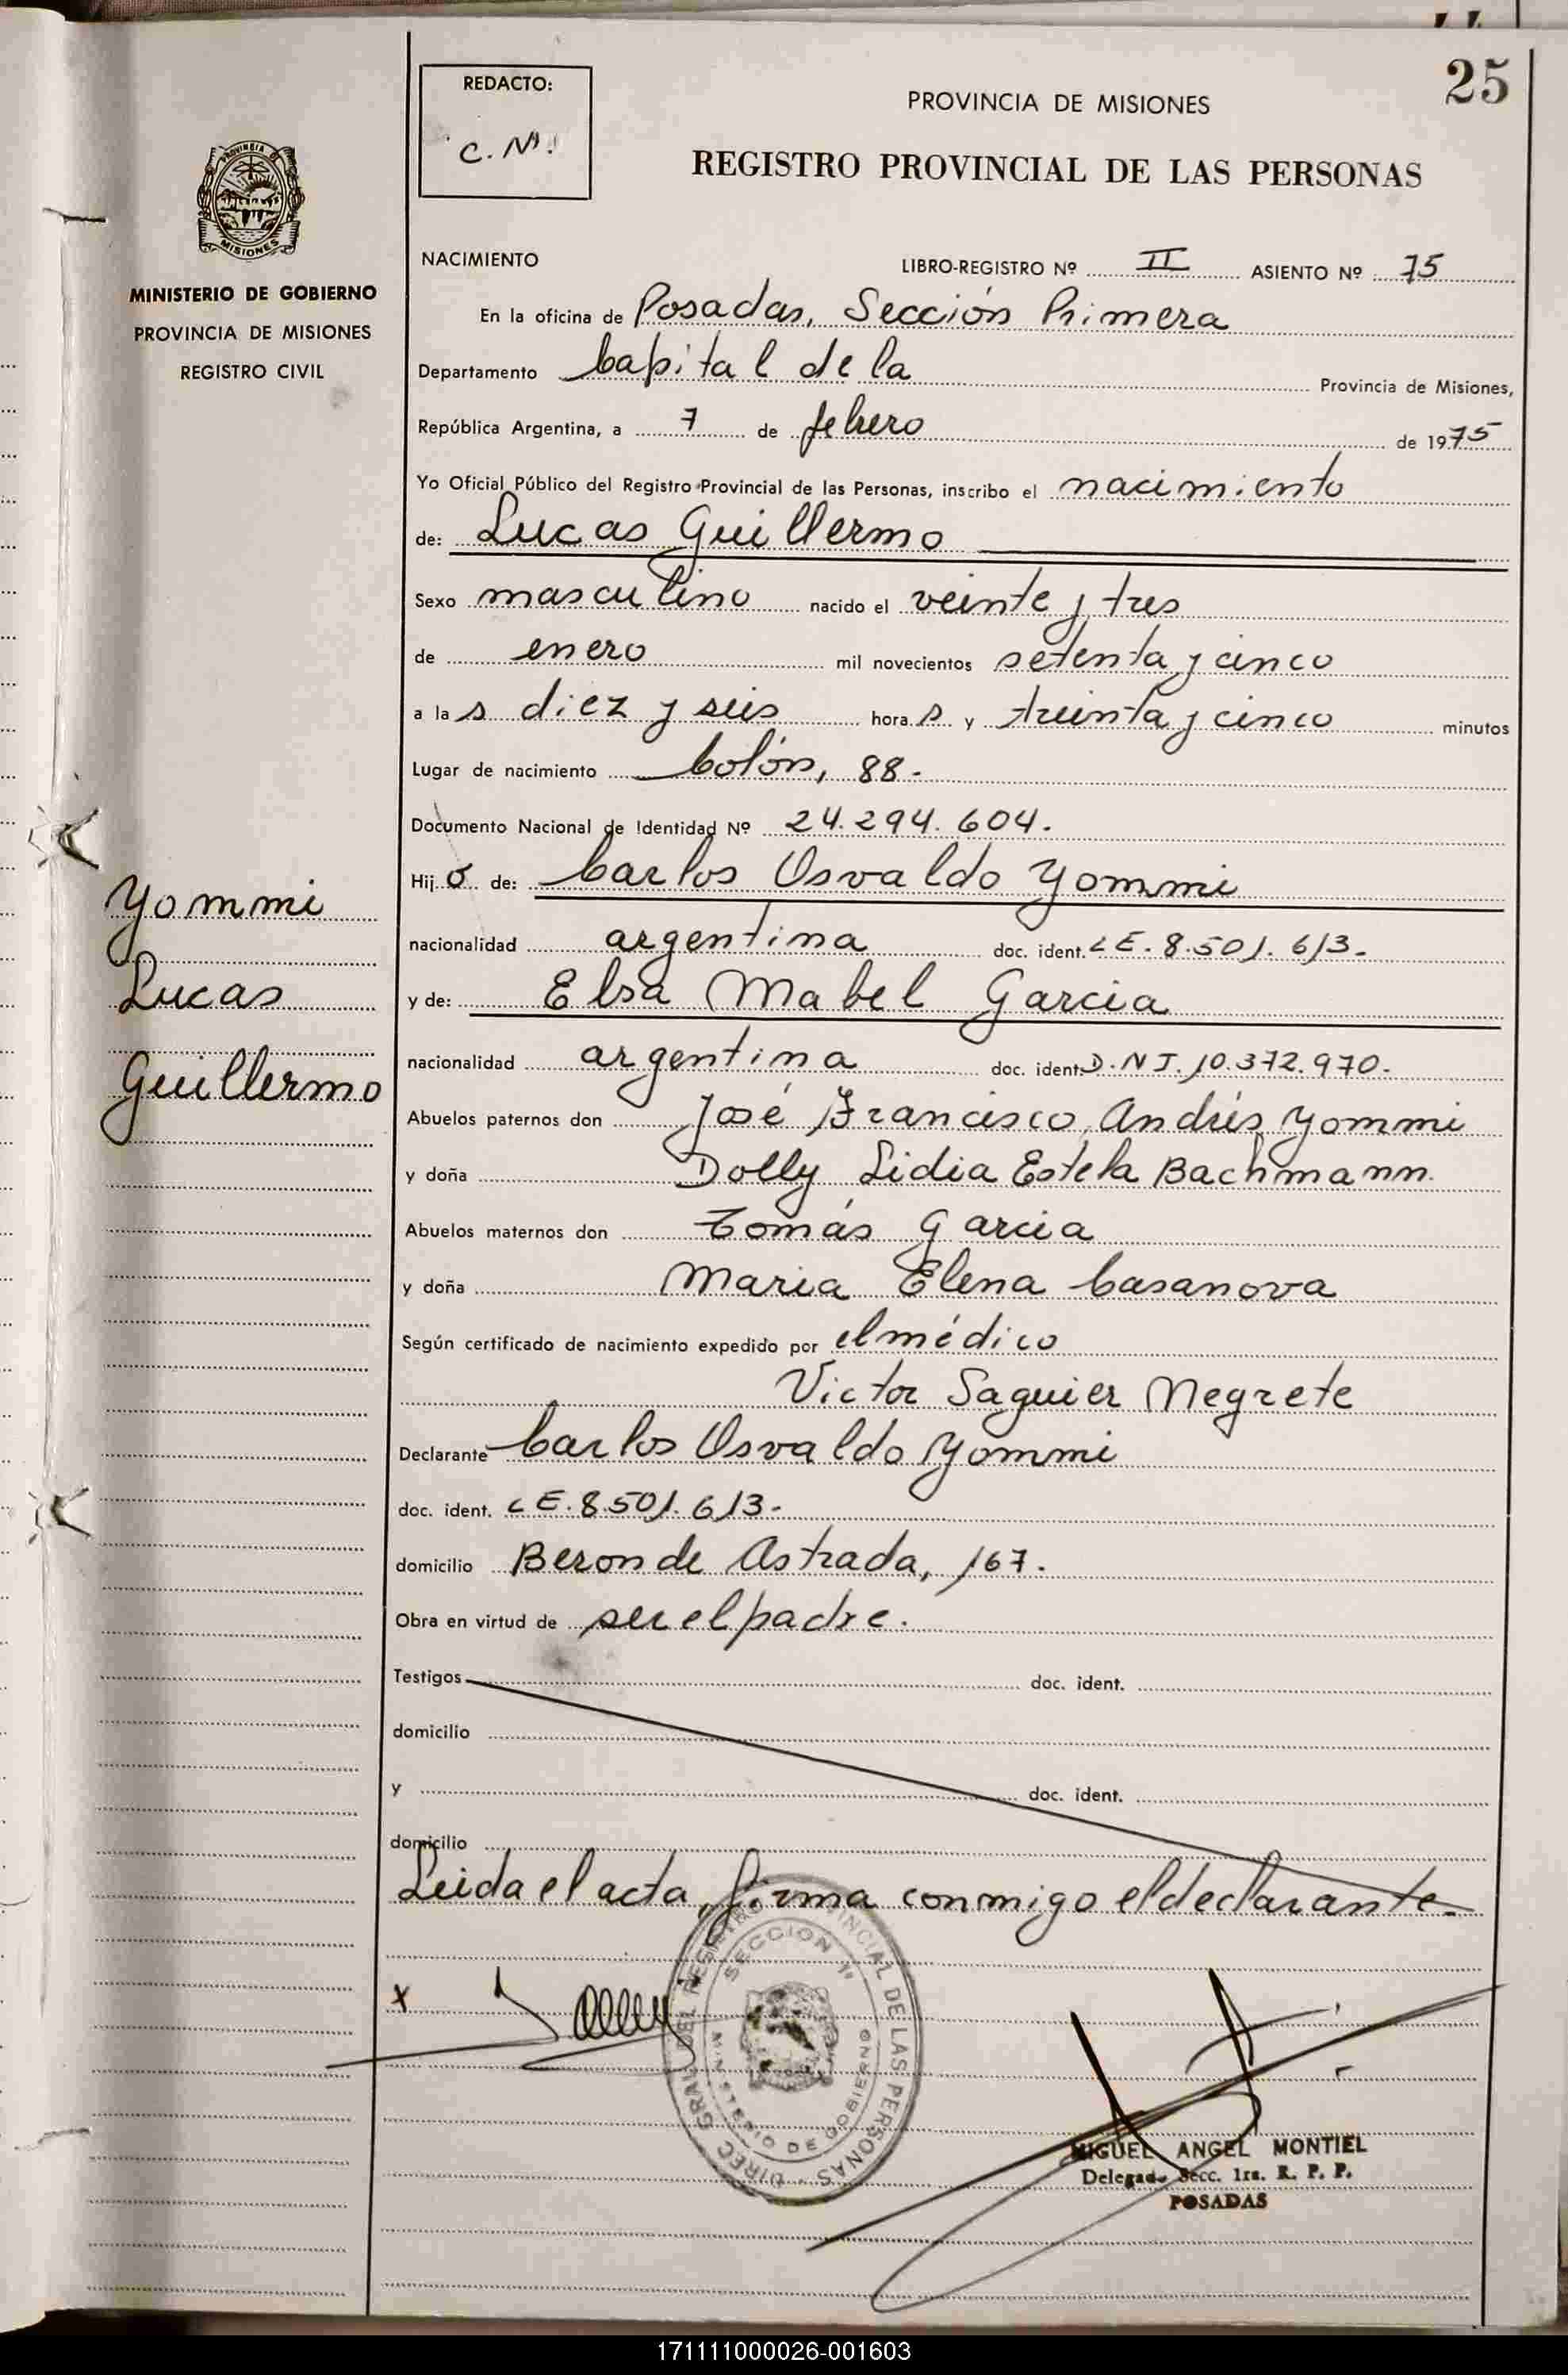 25
REDACTO:
C. M.
PROVINCIA DE MISIONES
REGISTRO PROVINCIAL DE LAS PERSONAS
PROVINCIA DE
MISIONES
MINISTERIO DE GOBIERNO
PROVINCIA DE MISIONES
REGISTRO CIVIL
NACIMIENTO LIBRO-REGISTRO Nº II ASIENTO Nº 75
En la oficina de Posadas, Sección Primera
Departamento Capital de la Provincia de Misiones,
República Argentina, a 7 de febrero de 1975
Yo Oficial Público del Registro Provincial de las Personas, inscribo el nacimiento
de: Lucas Guillermo
Sexo masculino nacido el veinte y tres
de enero mil novecientos setenta y cinco
a las diez y seis horas y treinta y cinco minutos
Lugar de nacimiento Colón, 88.
Documento Nacional de Identidad Nº 24.294.604.
Hijo de: Carlos Osvaldo Yommi
nacionalidad argentina doc. ident. LE. 8.501.613.
y de: Elsa Mabel Garcia
nacionalidad argentina doc. ident. D.N.I. 10.372.970.
Abuelos paternos don José Francisco Andrés Yommi
y doña Dolly Lidia Estela Bachmann.
Abuelos maternos don Tomás Garcia
y doña Maria Elena Casanova
Según certificado de nacimiento expedido por el médico
Victor Saguier Negrete
Declarante Carlos Osvaldo Yommi
doc. ident. LE. 8.501.613.
domicilio Beron de Astrada, 167.
Obra en virtud de ser el padre.
Testigos doc. ident.
domicilio
y doc. ident.
domicilio
Leida el acta, firma conmigo el declarante.
Yommi
Lucas
Guillermo
x
DIREC. GRAL. DEL REGISTRO PROVINCIAL DE LAS PERSONAS
SECCION 1ª
MINISTERIO DE GOBIERNO
MIGUEL ANGEL MONTIEL
Delegado Secc. 1ra. R. P. P.
POSADAS
171111000026-001603